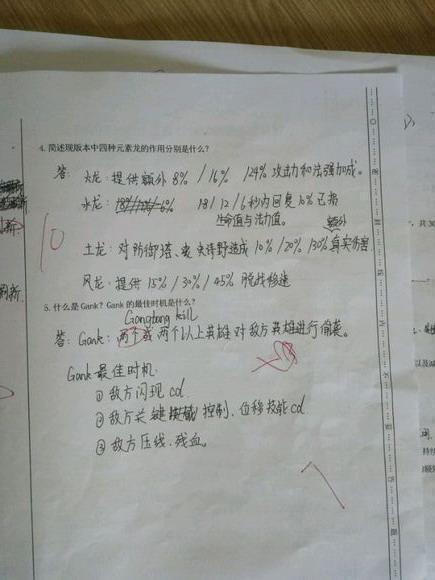 4. 简述现版本中四种元素龙的作用分别是什么?
答: 火龙: 提供额外 8% / 16% / 24% 攻击力和法强加成。
水龙: 18 / 12 / 6 秒内回复 10% 已损
生命值与法力值。
额外
10
土龙: 对防御塔、史诗野怪造成 10% / 20% / 30% 真实伤害
风龙: 提供 15% / 30% / 45% 脱战移速
5. 什么是 Gank? Gank 的最佳时机是什么?
kill
答: Gank: 两个或两个以上英雄对敌方英雄进行偷袭。
Gank 最佳时机
① 敌方闪现 cd
② 敌方关键控制、位移技能 cd
③ 敌方压线、残血。
7